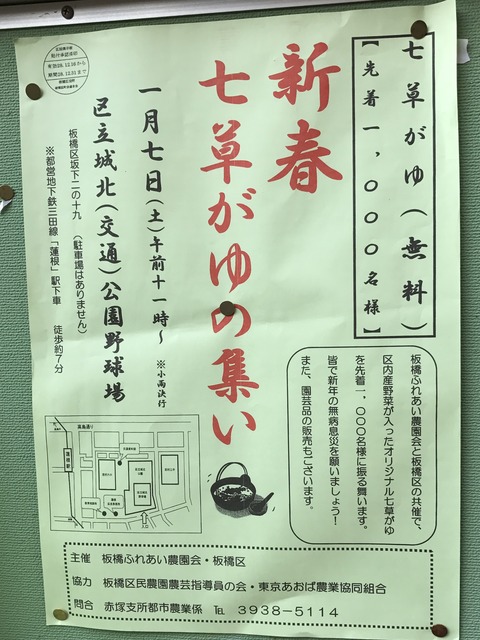 七草がゆ(無料)
【先着一,〇〇〇名様】
新春
七草がゆの集い
一月七日(土)午前十一時～
※小雨決行
区立城北(交通)公園野球場
板橋区坂下二の十九 (駐車場はありません)
※都営地下鉄三田線「蓮根」駅下車 徒歩約7分
板橋ふれあい農園会と板橋区の共催で、
区内産野菜が入ったオリジナル七草がゆ
を先着一,〇〇〇名様に振る舞います。
皆で新年の無病息災を願いましょう!
また、園芸品の販売もございます。
高島通り
主催 板橋ふれあい農園会・板橋区
協力 板橋区民農園農芸指導員の会・東京あおば農業協同組合
問合 赤塚支所都市農業係 ℡ 3938-5114